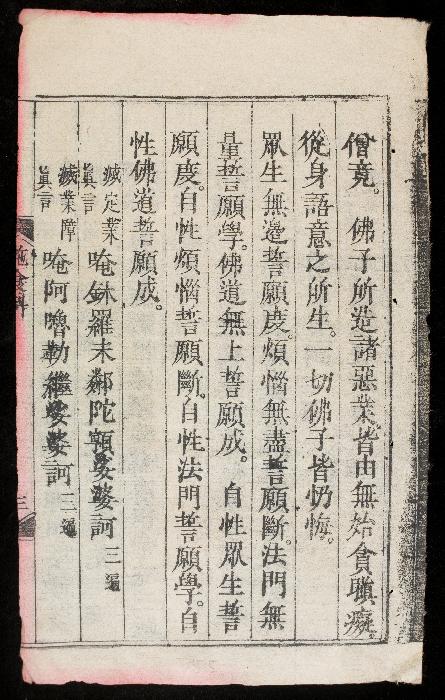 僧竟。佛子所造諸惡業。皆由無始貪瞋癡。
從身語意之所生。一切佛子皆忏悔。
眾生無邊誓願度。煩惱無盡誓願斷。法門無
量誓願學。佛道無上誓願成。自性眾生誓
願度。自性煩惱誓願斷。自性法門誓願學。自
性佛道誓願成。
滅定業真言 唵鉢羅末鄰陀顊娑婆訶 三遍
滅業障真言 唵阿嚕勒繼娑婆訶 三遍
施食科
三